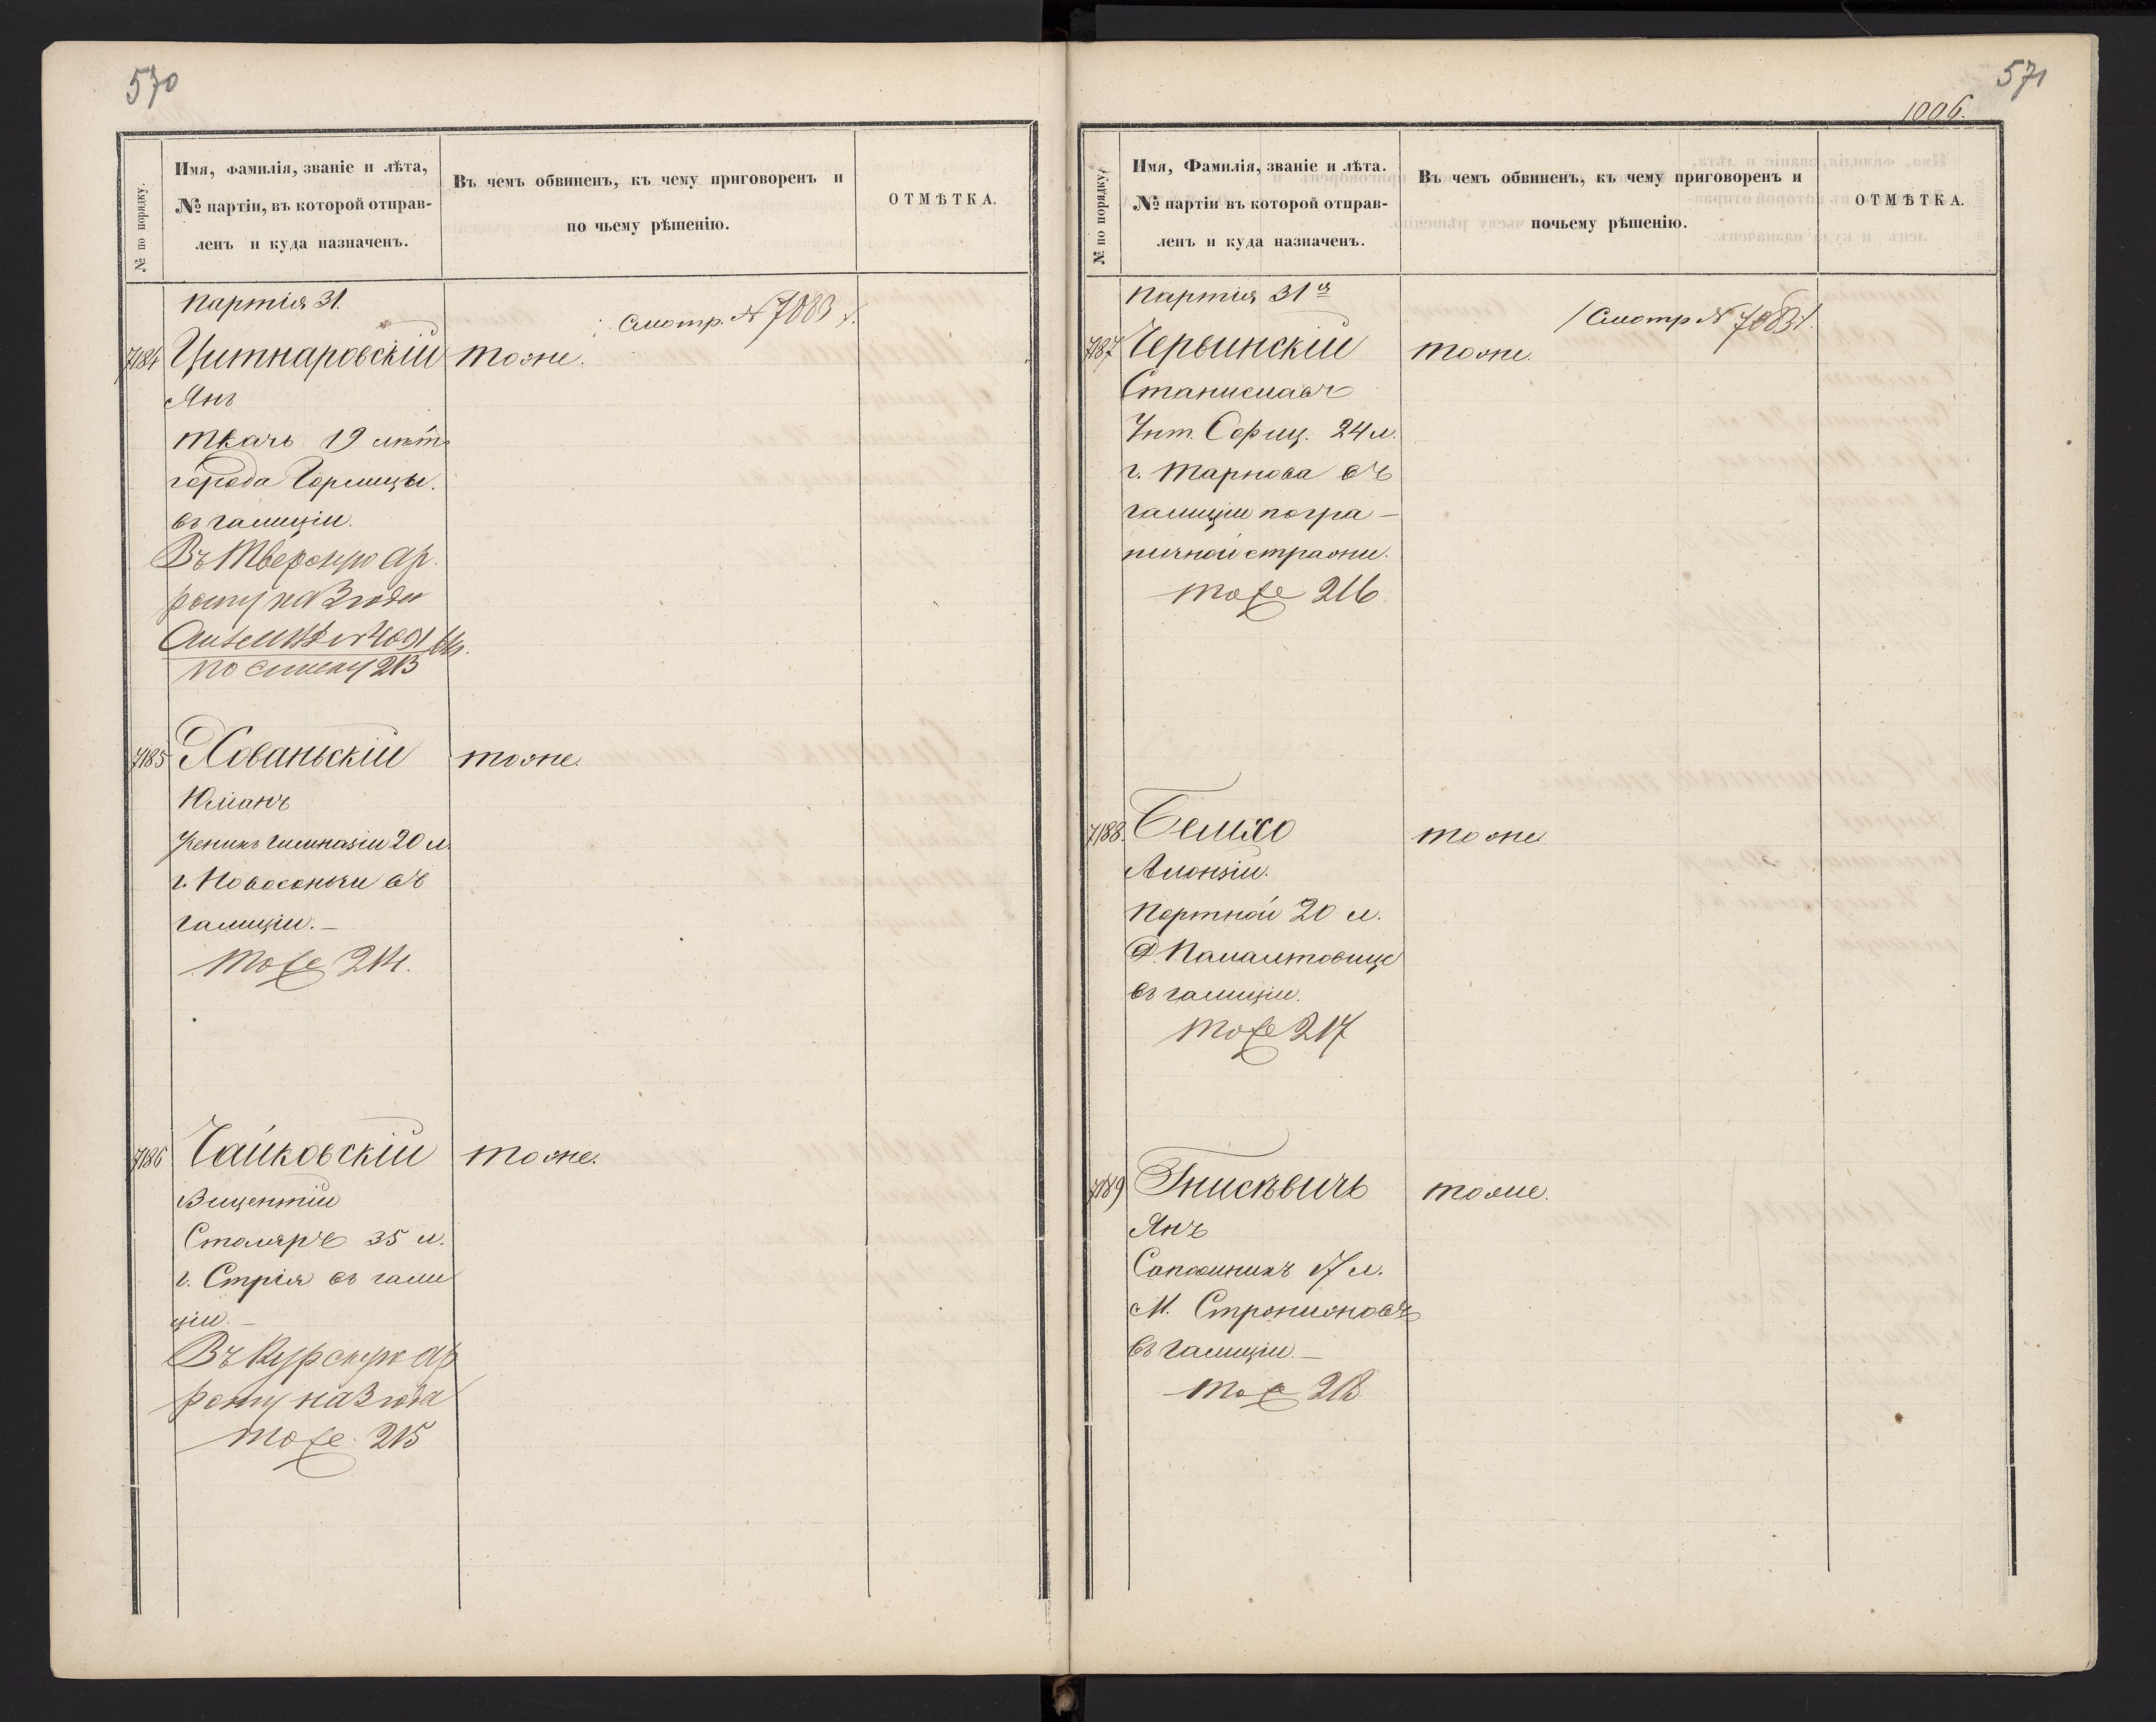 570
№ по порядку.
Имя, фамилія, званіе и лѣта,
№ партіи, въ которой отправ-
ленъ и куда назначенъ.
Въ чемъ обвиненъ, къ чему приговоренъ и
по чьему рѣшенію.
ОТМѢТКА.
Партія 31.
Смотр. N 7083
7184 Цитнаровскій тоже.
Янъ
Ткачъ 19 лѣтъ
города Горлицы.
въ Галиціи.
Въ Тверскую ар.
роту на 3 года
по списку 213
7185 Хованьскій тоже.
Юліанъ
гимназіи 20 л.
г. въ
Галиціи.—
Тоже 214.
7186 Чайковскій тоже.
Вицентій
Столяръ 35 л.
г. Стрія въ Гали
ціи.—
Въ Курскую ар
роту на 3 года
тоже 215
571
1006.
№ по порядку.
Имя, Фамилія, званіе и лѣта.
№ партіи въ которой отправ-
ленъ и куда назначенъ.
Въ чемъ обвиненъ, къ чему приговоренъ и
почьему рѣшенію.
ОТМѢТКА.
Партія 31я
/Смотр N 7083/.
7187 Червинскій тоже.
Станиславъ
Унт. Офиц. 24 л.
г. Тарнова въ
Галиціи погра-
ничной стражи.
тоже 216
7188. тоже
Алоизій.
Портной 20 л.
въ Галиціи.
тоже 217
7189 Гнисѣвичъ тоже.
Янъ
Сапожникъ 17 л.
М.
въ Галиціи.—
тоже 218